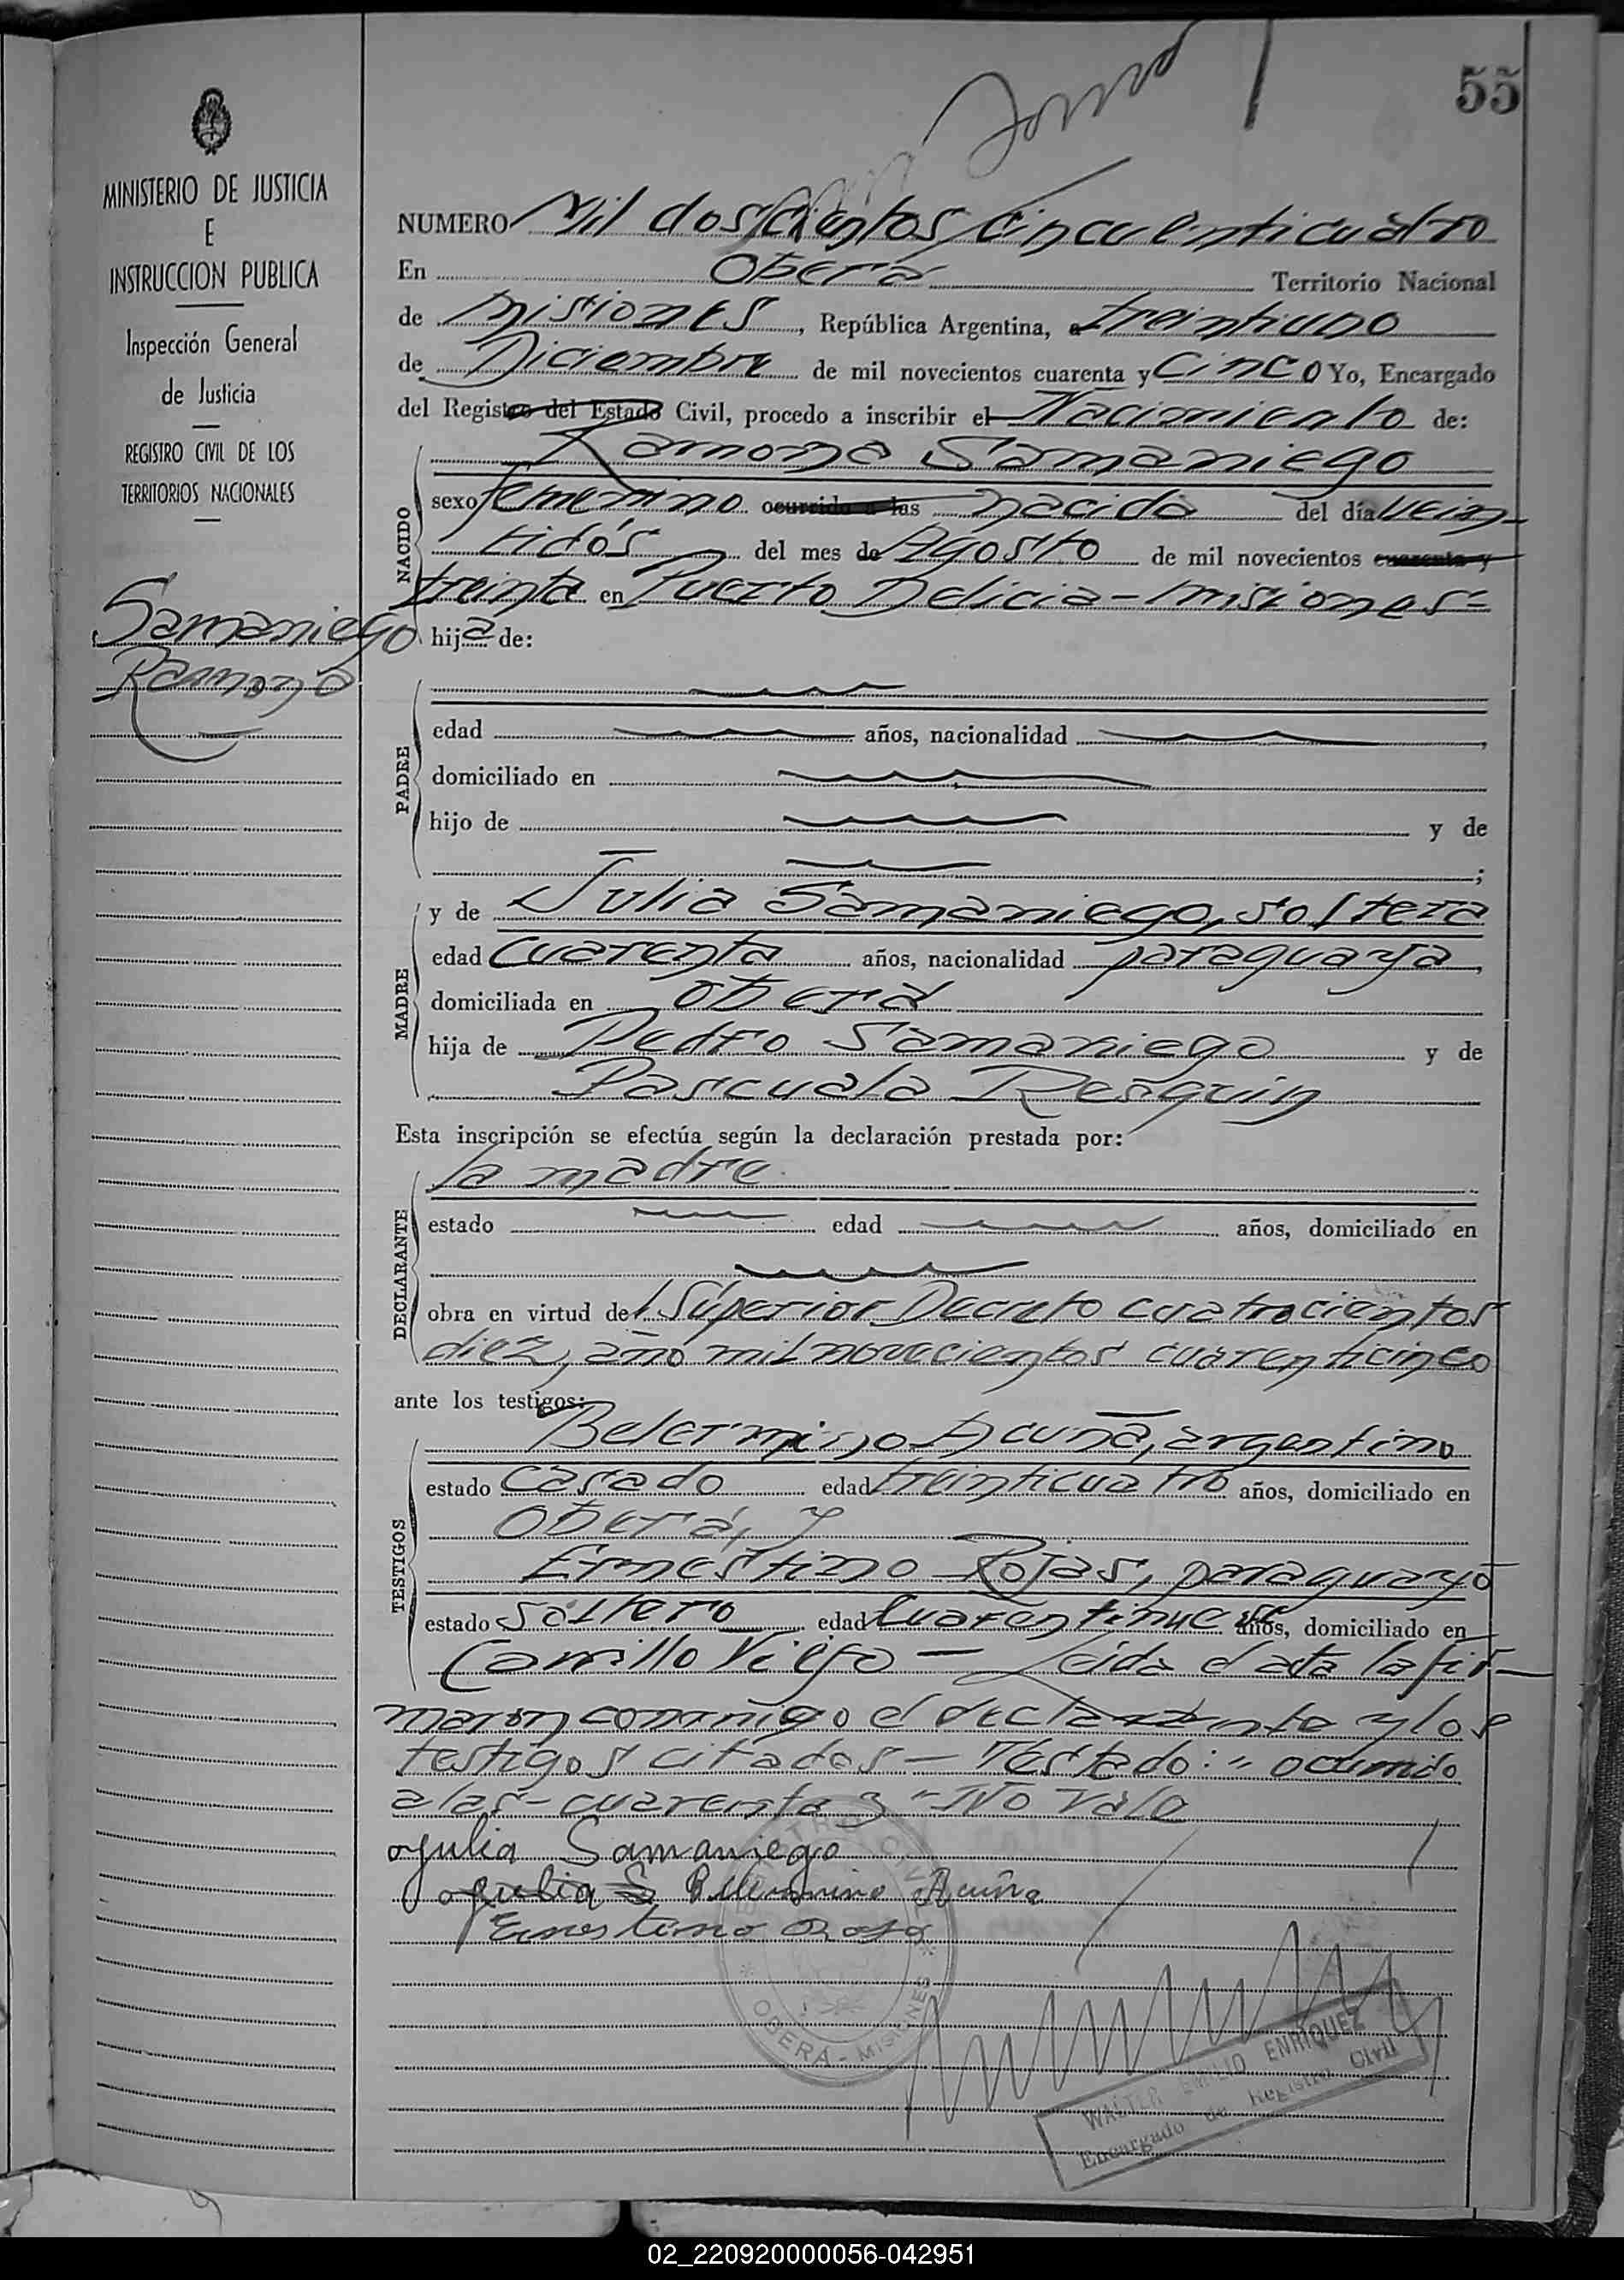 55
MINISTERIO DE JUSTICIA
E
INSTRUCCION PUBLICA
Inspección General
de Justicia
REGISTRO CIVIL DE LOS
TERRITORIOS NACIONALES
Samaniego
Ramona
NUMERO Mil doscientos cincuenticuatro
En Oberá Territorio Nacional
de Misiones, República Argentina, a treintiuno
de Diciembre de mil novecientos cuarenta y Cinco Yo, Encargado
del Registro del Estado Civil, procedo a inscribir el Nacimiento de:
Ramona Samaniego
NACIDO
sexo femenino ocurrido a las nacida del día vein-
tidós del mes de Agosto de mil novecientos cuarenta y
treinta en Puerto Delicia - Misiones=
hija de:
PADRE
edad años, nacionalidad ,
domiciliado en
hijo de y de
;
MADRE
y de Julia Samaniego, soltera
edad cuarenta años, nacionalidad paraguaya,
domiciliada en Oberá
hija de Pedro Samaniego y de
Pascuala Resquin
Esta inscripción se efectúa según la declaración prestada por:
DECLARANTE
la madre
estado edad años, domiciliado en
obra en virtud del Superior Decreto cuatrocientos
diez, año mil novecientos cuarenticinco
ante los testigos:
TESTIGOS
Belermino Acuña, argentino
estado casado edad treinticuatro años, domiciliado en
Oberá, y
Ernestino Rojas, paraguayo
estado soltero edad cuarentinueve años, domiciliado en
Carrillo Viejo - Leida el acta la fir-
maron conmigo el declarante y los
testigos citados - Testado: " ocurrido
a las - cuarenta y " No Vale
Julia Samaniego
Julia S Belermino Acuña
Ernestino Rojas
REGISTRO CIVIL
* OBERA - MISIONES *
WALTER EMILIO ENRIQUEZ
Encargado de Registro Civil
02_220920000056-042951